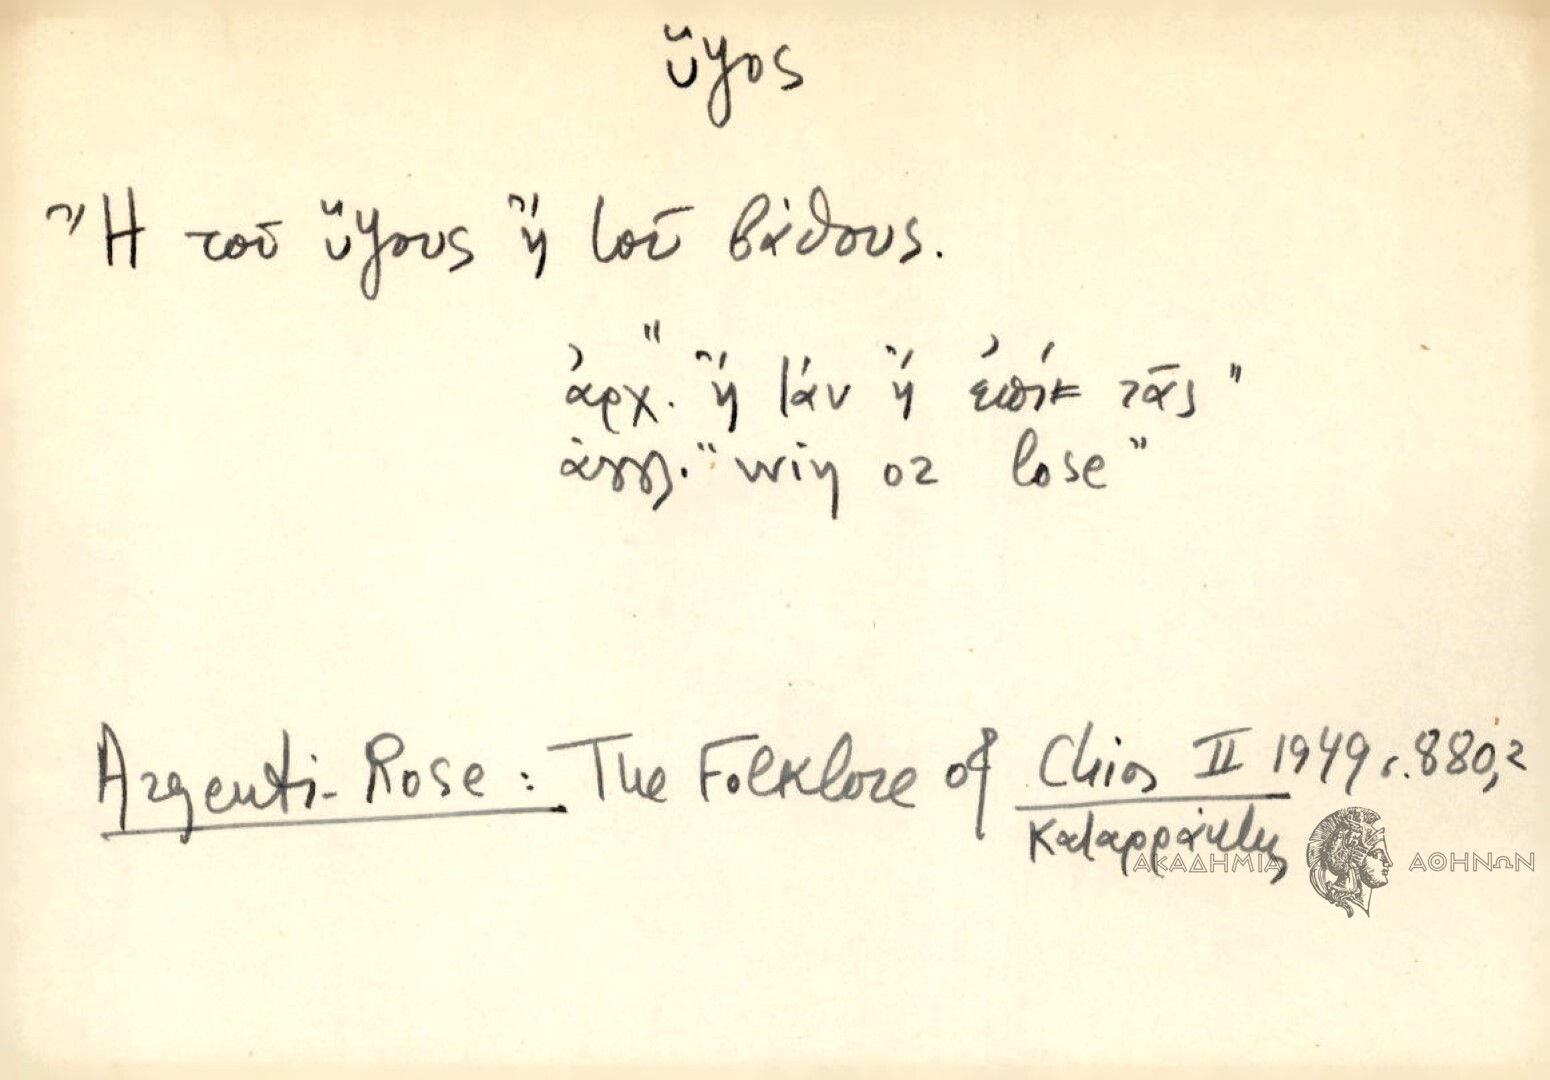 ὕψος
Ἢ τοῦ ὕψους ἢ τοῦ βάθους.
ἀρχ. "ἢ τάν ἢ ἐπὶ τᾶς"
ἀγγλ. "win or lose"
Argenti-Rose: The Folklore of Chios II 1949 σ. 880,2
Καταρράκτης
ΑΚΑΔΗΜΙΑ ΑΘΗΝΩΝ